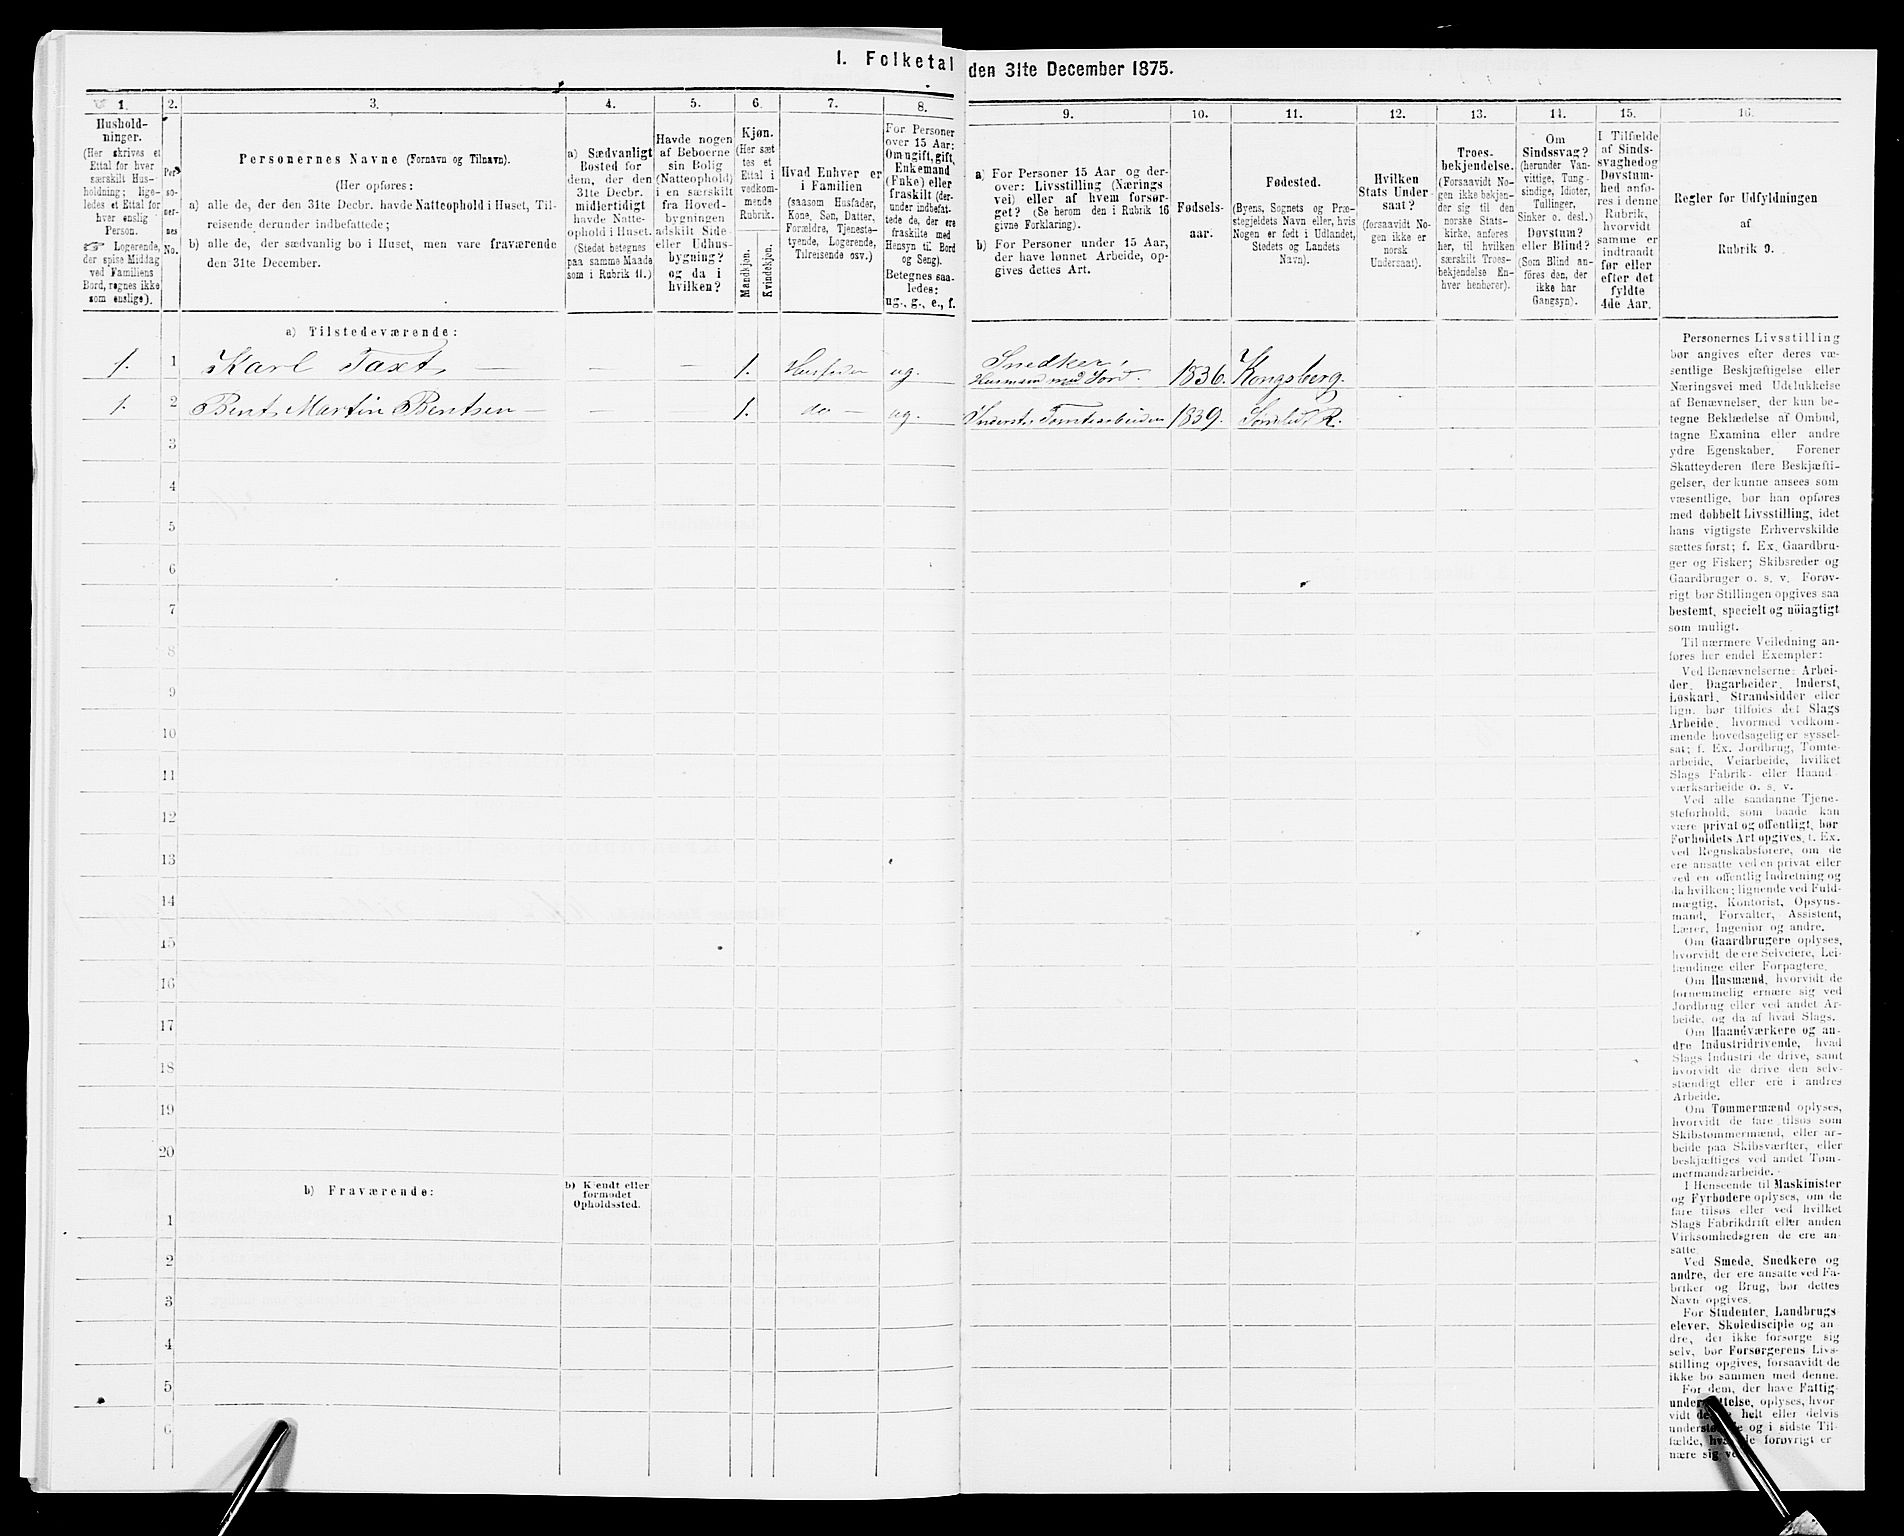 I. Folketal den 31te December 1875.
1.
Hushold-
ninger.
(Her skrives et
Ettal for hver
særskilt Hus-
holdning; lige-
ledes et Ettal for
hver enslig
Person.
☞ Logerende,
der spise Middag
ved Familiens
Bord, regnes ikke
som enslige).
2.
Per-
so-
ner-
nes
No.
3.
Personernes Navne (Fornavn og Tilnavn).
(Her opføres:
a) alle de, der den 31te Decbr. havde Natteophold i Huset, Til-
reisende derunder indbefattede;
b) alle de, der sædvanlig bo i Huset, men vare fraværende
den 31te December.
4.
a) Sædvanligt
Bosted for
dem, der den
31te Decbr.
midlertidigt
havde Natte-
ophold i Huset.
(Stedet betegnes
paa samme Maade
som i Rubrik 11.)
5.
Havde nogen
af Beboerne
sin Bolig
(Natteophold)
i en særskilt
fra Hoved-
bygningen
adskilt Side-
eller Udhus-
bygning?
og da i
hvilken?
6.
Kjøn.
(Her sæt-
tes et
Ettal i
vedkom-
mende
Rubrik.
Mandkjøn.
Kvindekjøn.
7.
Hvad Enhver er
i Familien
(saasom Husfader,
Kone, Søn, Datter,
Forældre, Tjeneste-
tyende, Logerende,
Tilreisende osv.)
8.
For Personer
over 15 Aar:
Om ugift, gift,
Enkemand
(Enke) eller
fraskilt (der-
under indbefat-
tede de, der ere
fraskilte med
Hensyn til Bord
og Seng).
Betegnes saa-
ledes:
ug., g., e., f.
9.
a) For Personer 15 Aar og der-
over: Livsstilling (Nærings-
vei) eller af hvem forsør-
get? (Se herom den i Rubrik 16
givne Forklaring).
b) For Personer under 15 Aar,
der have lønnet Arbeide, op-
gives dettes Art.
10.
Fødsels-
aar.
11.
Fødested.
(Byens, Sognets og Præ-
stegjeldets Navn eller, hvis
Nogen er født i Udlandet,
Stedets og Landets
Navn).
12.
Hvilken
Stats Under-
saat?
(forsaavidt No-
gen ikke er
norsk
Undersaat).
13.
Troes-
bekjendelse.
(Forsaavidt No-
gen ikke bekjen-
der sig til den
norske Stats-
kirke, anføres
her, til hvilken
særskilt Troes-
bekjendelse En-
hver henhører).
14.
Om
Sindssvag?
(herunder Van-
vittige, Tung-
sindige, Idioter,
Tullinger,
Sinker o. desl.)
Døvstum?
eller Blind?
(Som Blind an-
føres den, der
ikke har
Gangsyn).
15.
I Tilfælde
af Sinds-
svaghed og
Døvstum-
hed anfø-
res i denne
Rubrik,
hvorvidt
samme er
indtraadt
før eller
efter det
fyldte
4de Aar.
16.
Regler for Udfyldningen
af
Rubrik 9.
a) Tilstedeværende:
1. 1 Karl Taxt, — — — 1. Husfader ug. Snedker, Husmand med Jord. 1836. Kongsberg.
1. 2 Bent Martin Bentsen — — — 1. do — ug. Inderst, Tomtearbeider 1839. R.
3
4
5
6
7
8
9
10
11
12
13
14
15
16
17
18
19
20
b) Fraværende:
b) Kjendt eller
formodet
Opholdssted.
1
2
3
4
5
6
Personernes Livsstilling
bør angives efter deres væ-
sentlige Beskjæftigelse eller
Næringsvei med Udelukkelse
af Benævnelser, der kun be-
tegne Beklædelse af Ombud,
tagne Examina eller andre
ydre Egenskaber. Forener
Skatteyderen flere Beskjæfti-
gelser, der kunne ansees som
væsentlige, bør han opføres
med dobbelt Livsstilling, idet
hans vigtigste Erhvervskilde
sættes først; f. Ex. Gaardbru-
ger og Fisker; Skibsreder og
Gaardbruger o. s. v. Forøv-
rigt bør Stillingen opgives saa
bestemt, specielt og nöiagtigt
som muligt.
Til nærmere Veiledning an-
føres her endel Exempler:
Ved Benævnelserne: Arbei-
der, Dagarbeider, Inderst,
Løskarl, Strandsidder eller
lign. bør tilføies det Slags
Arbeide, hvormed vedkom-
mende hovedsagelig er syssel-
sat; f. Ex. Jordbrug, Tomte-
arbeide, Veiarbeide, hvilket
Slags Fabrik- eller Haand-
værksarbeide o. s. v.
Ved alle saadanne Tjene-
steforhold, som baade kan
være privat og offentligt, bør
Forholdets Art opgives, f. Ex.
ved Regnskabsførere, om de
ere ansatte ved en privat eller
ved en offentlig Indretning og
da hvilken; lignende ved Fuld-
mægtig, Kontorist, Opsyns-
mand, Forvalter, Assistent,
Lærer, Ingeniør og andre.
Om Gaardbrugere oplyses,
hvorvidt de ere Selveiere, Lei-
lændinge eller Forpagtere.
Om Husmænd, hvorvidt de
fornemmelig ernære sig ved
Jordbrug eller ved andet Ar-
beide, og da af hvad Slags.
Om Haandværkere og an-
dre Industridrivende, hvad
Slags Industri de drive, samt
hvorvidt de drive den selv-
stændigt eller ere i andres
Arbeide.
Om Tømmermænd oplyses,
hvorvidt de fare tilsøs som
Skibstømmermænd, eller ar-
beide paa Skibsværfter, eller
beskjæftiges ved andet Tøm-
mermandsarbeide.
I Henseende til Maskinister
og Fyrbødere oplyses, om de
fare tilsøs eller ved hvilket
Slags Fabrikdrift eller anden
Virksomhedsgren de ere an-
satte.
Ved Smede, Snedkere og
andre, der ere ansatte ved Fa-
briker og Brug, bør dettes
Navn opgives.
For Studenter, Landbrugs-
elever, Skoledisciple og an-
dre, der ikke forsørge sig
selv, bør Forsørgerens Livs-
stilling opgives, forsaavidt de
ikke bo sammen med denne.
For dem, der have Fattig-
understøttelse, oplyses, hvor-
vidt de ere helt eller delvis
understøttede og i sidste Til-
fælde, hvad de forøvrigt er-
nære sig ved.